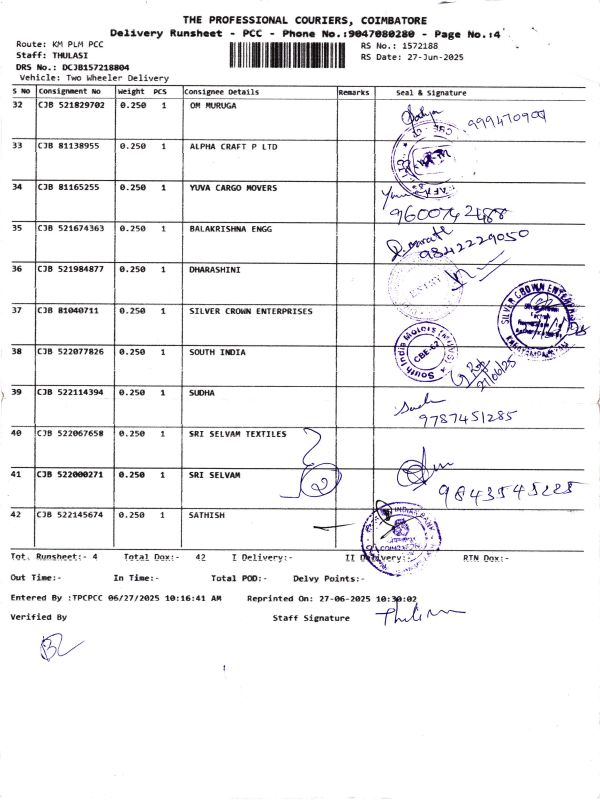 THE PROFESSIONAL COURIERS, COIMBATORE
Delivery Runsheet - PCC - Phone No.:9047080280 - Page No.:4
Route: KM PLM PCC
RS No.: 1572188
Staff: THULASI
RS Date: 27-Jun-2025
DRS No.: DCJB157218804
Vehicle: Two Wheeler Delivery
S No Consignment No Weight PCS Consignee Details Remarks Seal & Signature
32 CJB 521829702 0.250 1 OM MURUGA
33 CJB 81138955 0.250 1 ALPHA CRAFT P LTD
34 CJB 81165255 0.250 1 YUVA CARGO MOVERS
9600742488
35 CJB 521674363 0.250 1 BALAKRISHNA ENGG
9842229050
36 CJB 521984877 0.250 1 DHARASHINI
ENTRY
37 CJB 81040711 0.250 1 SILVER CROWN ENTERPRISES
SILVER CROWN ENTERPRISES
38 CJB 522077826 0.250 1 SOUTH INDIA
South India Motors
CBE-
27/06/25
39 CJB 522114394 0.250 1 SUDHA
9787451285
40 CJB 522067658 0.250 1 SRI SELVAM TEXTILES
41 CJB 522000271 0.250 1 SRI SELVAM
9843545225
42 CJB 522145674 0.250 1 SATHISH
INDIAN BANK
Tot. Runsheet:- 4 Total Dox:- 42 I Delivery:- II Delivery:- RTN Dox:-
Out Time:- In Time:- Total POD:- Delvy Points:-
Entered By :TPCPCC 06/27/2025 10:16:41 AM Reprinted On: 27-06-2025 10:30:02
Verified By Staff Signature